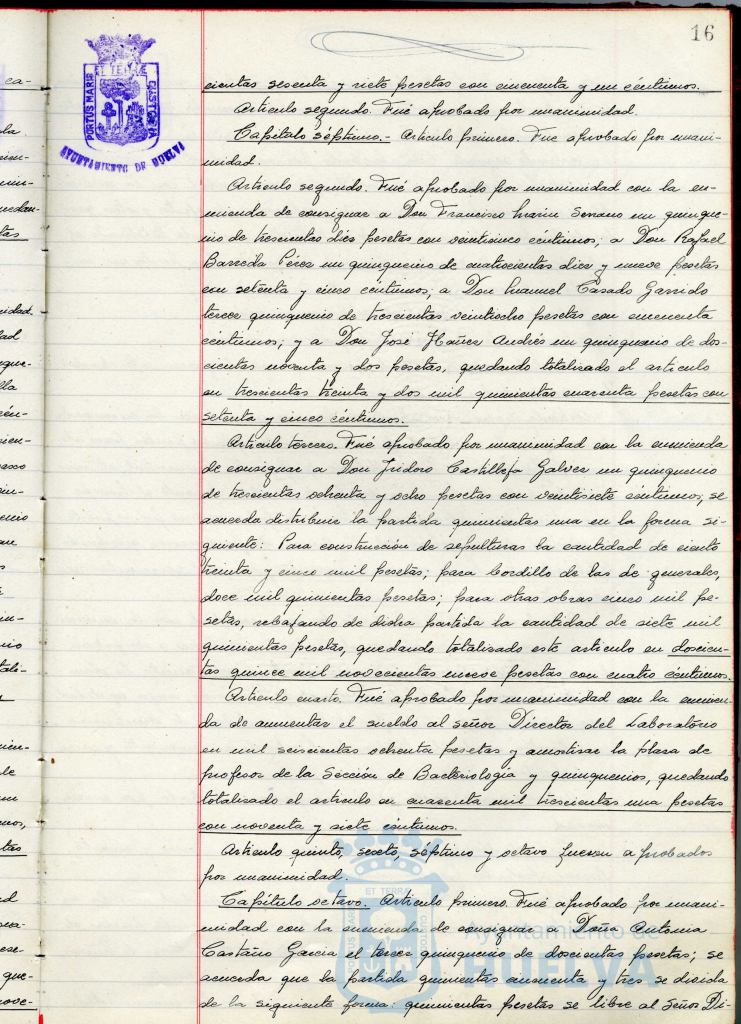 16
PORTUS MARIS ET TERRAE CUSTODIA
AYUNTAMIENTO DE HUELVA
cientas sesenta y siete pesetas con cincuenta y un céntimos.
Artículo segundo. Fué aprobado por unanimidad.
Capítulo séptimo.- Artículo primero. Fue aprobado por unani-
midad.
Artículo segundo. Fué aprobado por unanimidad con la en-
mienda de consignar a Don Francisco Marin Serrano un quinque-
nio de trescientas diez pesetas con veinticinco céntimos; a Don Rafael
Barreda Pérez un quinquenio de cuatrocientas diez y nueve pesetas
con setenta y cinco céntimos; a Don Manuel Casado Garrido
tercer quinquenio de trescientas veintiocho pesetas con cincuenta
céntimos; y a Don José Ibáñez Andrés un quinquenio de dos-
cientas noventa y dos pesetas, quedando totalizado el artículo
en trescientas treinta y dos mil quinientas cuarenta pesetas con
setenta y cinco céntimos.
Artículo tercero. Fué aprobado por unanimidad con la enmienda
de consignar a Don Isidoro Castilleja Galvez un quinquenio
de trescientas ochenta y ocho pesetas con veintisiete céntimos; se
acuerda distribuir la partida quinientas una en la forma si-
guiente: Para construcción de sepulturas la cantidad de ciento
treinta y cinco mil pesetas; para bordillo de las de generales,
doce mil quinientas pesetas; para otras obras cinco mil pe-
setas, rebajando de dicha partida la cantidad de siete mil
quinientas pesetas, quedando totalizado este artículo en doscien-
tas quince mil novecientas nueve pesetas con cuatro céntimos.
Artículo cuarto. Fué aprobado por unanimidad con la enmien-
da de aumentar el sueldo al señor Director del Laboratorio
en mil seiscientas ochenta pesetas y amortizar la plaza de
profesor de la Sección de Bacteriología y quinquenios, quedando
totalizado el artículo en cuarenta mil trescientas una pesetas
con noventa y siete céntimos.
Artículo quinto, sexto, séptimo y octavo fueron aprobados
por unanimidad.
Capítulo octavo. Artículo primero. Fué aprobado por unani-
midad con la enmienda de consignar a Doña Antonia
Castaño Garcia el tercer quinquenio de doscientas pesetas; se
acuerda que la partida quinientas cincuenta y tres se divida
de la siguiente forma: quinientas pesetas se libre al Señor Di-
Ayuntamiento de
HUELVA